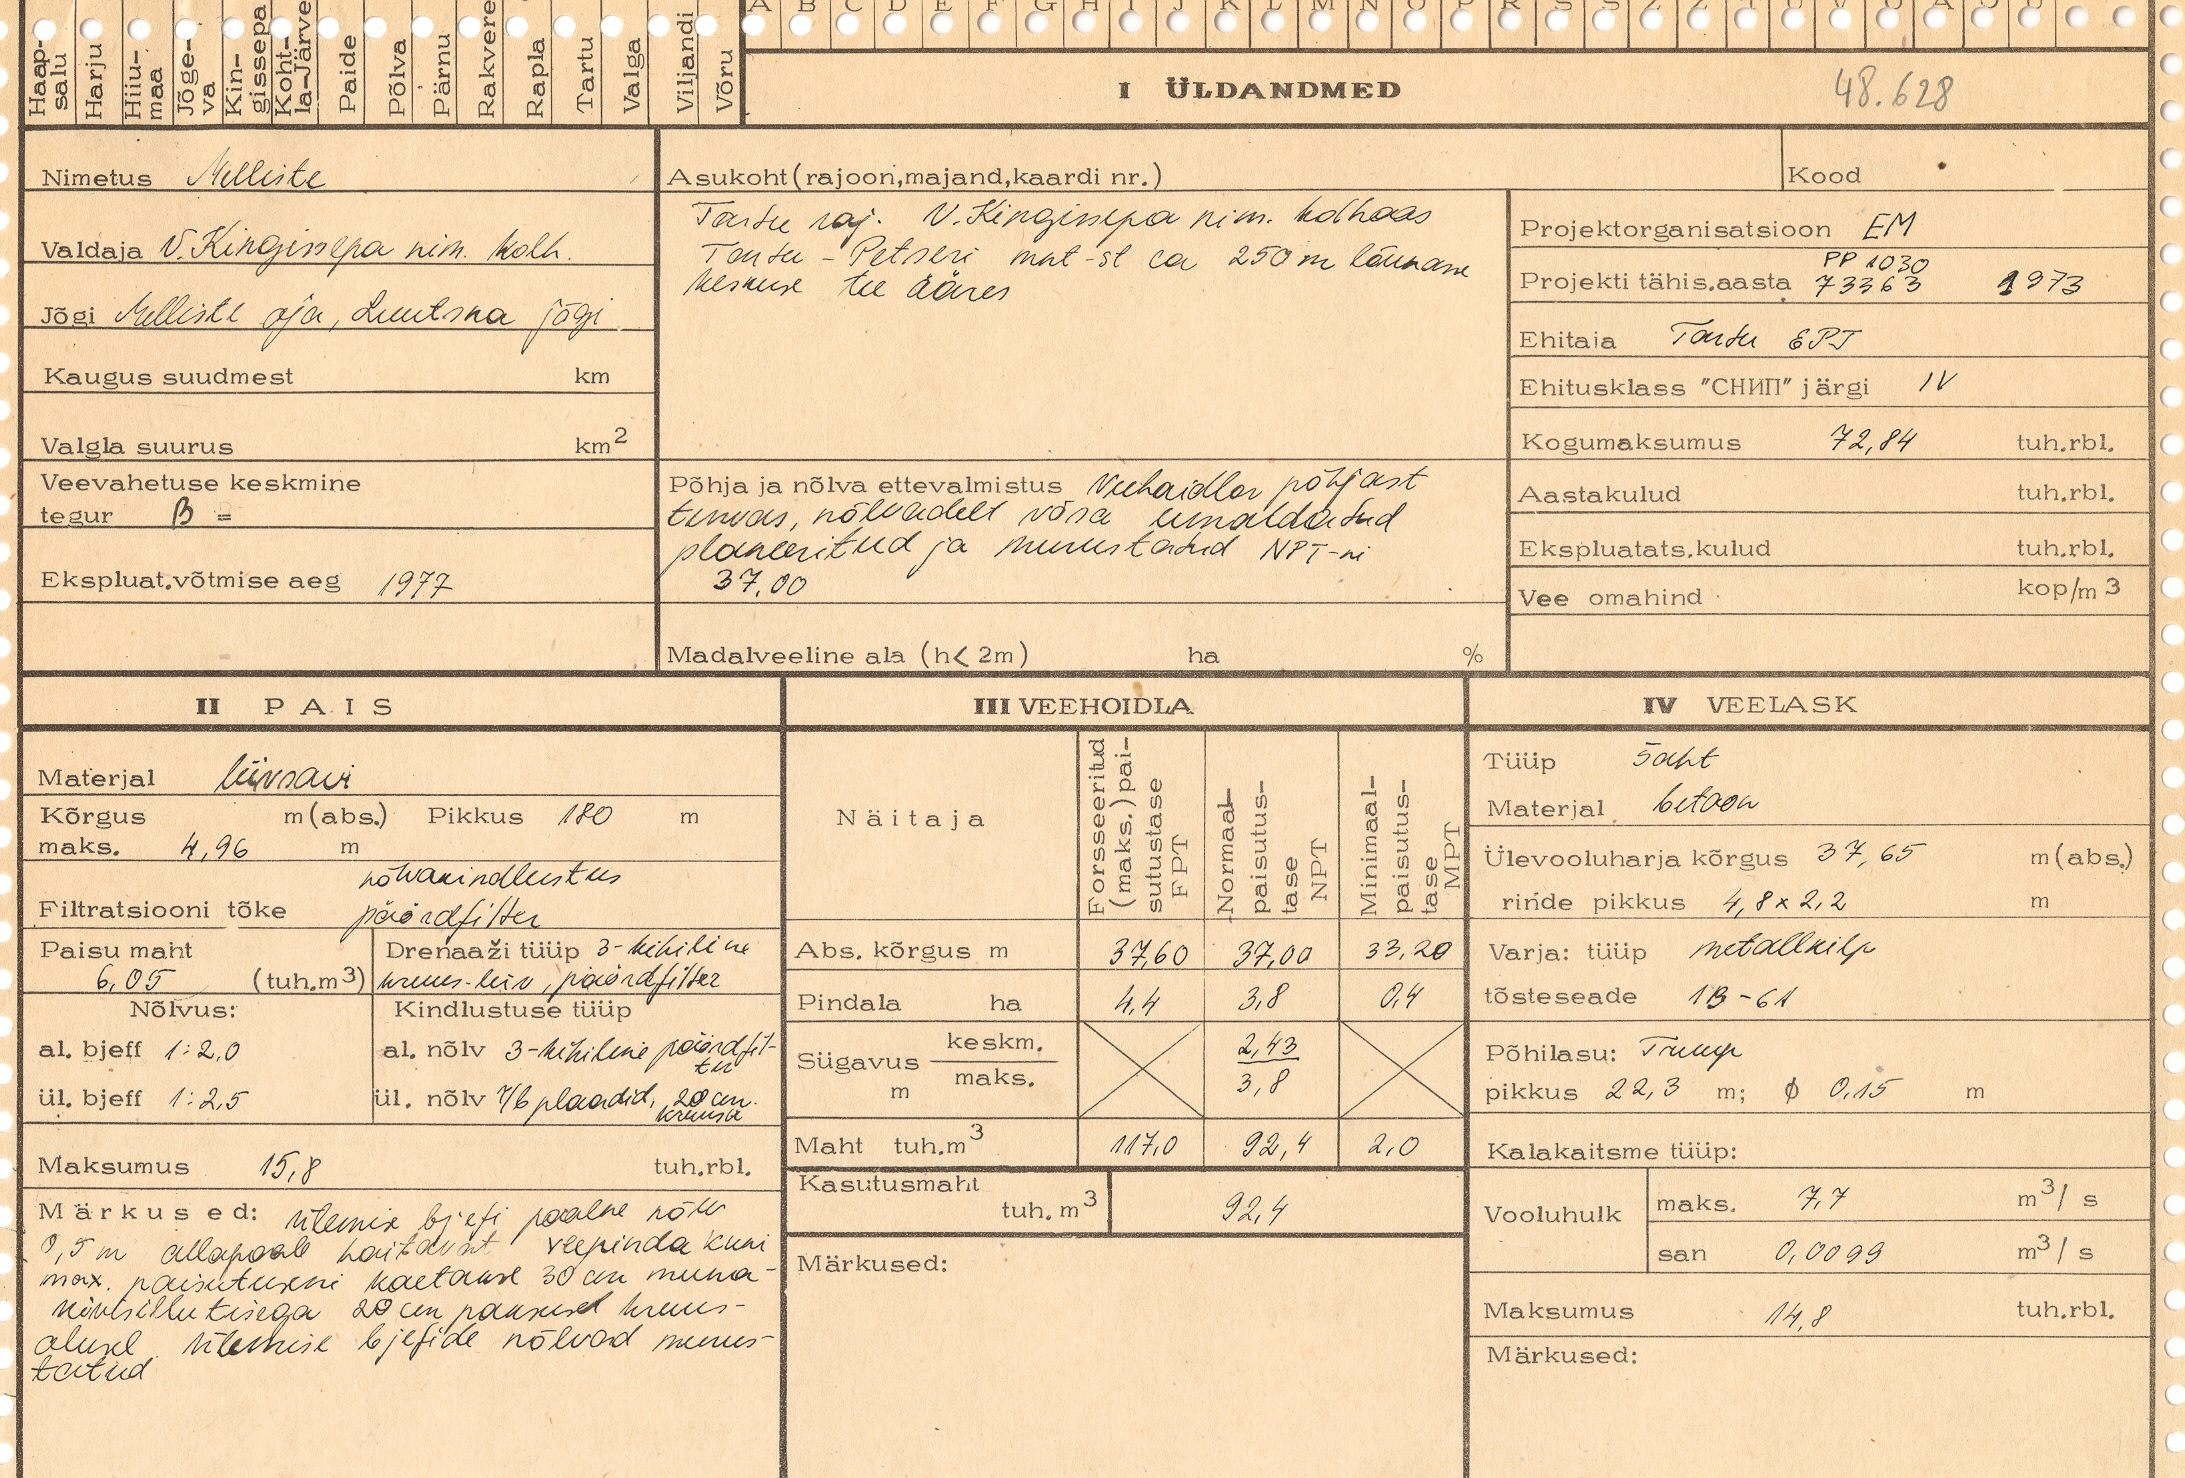 A B C D E F G H I J K L M N O P R S Š Z Ž T U V Õ Ä Ö Ü
Haap-
salu
Harju
Hiiu-
maa
Jõge-
va
Kin-
gissepa
Koht-
la-Järve
Paide
Põlva
Pärnu
Rakvere
Rapla
Tartu
Valga
Viljandi
Võru
I ÜLDANDMED
48.628
Nimetus Melliste
Valdaja V. Kingissepa nim. kolh.
Jõgi Melliste oja, Luutsna jõgi
Kaugus suudmest km
Valgla suurus km²
Veevahetuse keskmine
tegur β =
Ekspluat.võtmise aeg 1977
Asukoht (rajoon,majand,kaardi nr.)
Tartu raj. V. Kingissepa nim. kolhoos
Tartu - Petseri mnt-st ca 250 m lõunasse
keskuse tee ääres
Põhja ja nõlva ettevalmistus Veehoidlas põhjast
turvas, nõlvadelt võsa eemaldatud
planeeritud ja murustatud NPT-ni
37,00
Madalveeline ala (h< 2m) ha %
Kood
Projektorganisatsioon EM
PP 1030
Projekti tähis.aasta 73363 1973
Ehitaja Tartu EPT
Ehitusklass "СНИП" järgi IV
Kogumaksumus 72,84 tuh.rbl.
Aastakulud tuh.rbl.
Ekspluatats.kulud tuh.rbl.
Vee omahind kop/m³
II PAIS
Materjal liivsavi
Kõrgus m (abs.) Pikkus 180 m
maks. 4,96 m
nõlvakindlustus
Filtratsiooni tõke pöördfilter
Paisu maht
6,05 (tuh.m³)
Drenaaži tüüp 3-kihiline
kruus-liiv, pöördfilter
Nõlvus:
al. bjeff 1:2,0
ül. bjeff 1:2,5
Kindlustuse tüüp
al. nõlv 3-kihiline pöördfil-
ter
ül. nõlv r/b plaadid, 20 cm
kruusa
Maksumus 15,8 tuh.rbl.
Märkused: Ülemise bjefi poolne nõlv
0,5 m allapoole kaitavat veepinda kuni
max. paisutuseni kaetakse 30 cm muna-
kivisillutisega 20 cm paksusel kruus-
alusel. Ülemise bjefide nõlvad murus-
tatud
III VEEHOIDLA
Näitaja
Forsseeritud
(maks.) pai-
sutustase
FPT
Normaal-
paisutus-
tase
NPT
Minimaal-
paisutus-
tase
MPT
Abs. kõrgus m 37,60 37,00 33,20
Pindala ha 4,4 3,8 0,4
Sügavus keskm. 2,43
m maks. 3,8
Maht tuh.m³ 117,0 92,4 2,0
Kasutusmaht
tuh. m³ 92,4
Märkused:
IV VEELASK
Tüüp šaht
Materjal betoon
Ülevooluharja kõrgus 37,65 m (abs.)
rinde pikkus 4,8 x 2,2 m
Varja: tüüp metallkilp
tõsteseade 1B-61
Põhilasu: Trump
pikkus 22,3 m; ϕ 0,15 m
Kalakaitsme tüüp:
Vooluhulk maks. 7,7 m³/ s
san 0,0099 m³/ s
Maksumus 14,8 tuh.rbl.
Märkused: